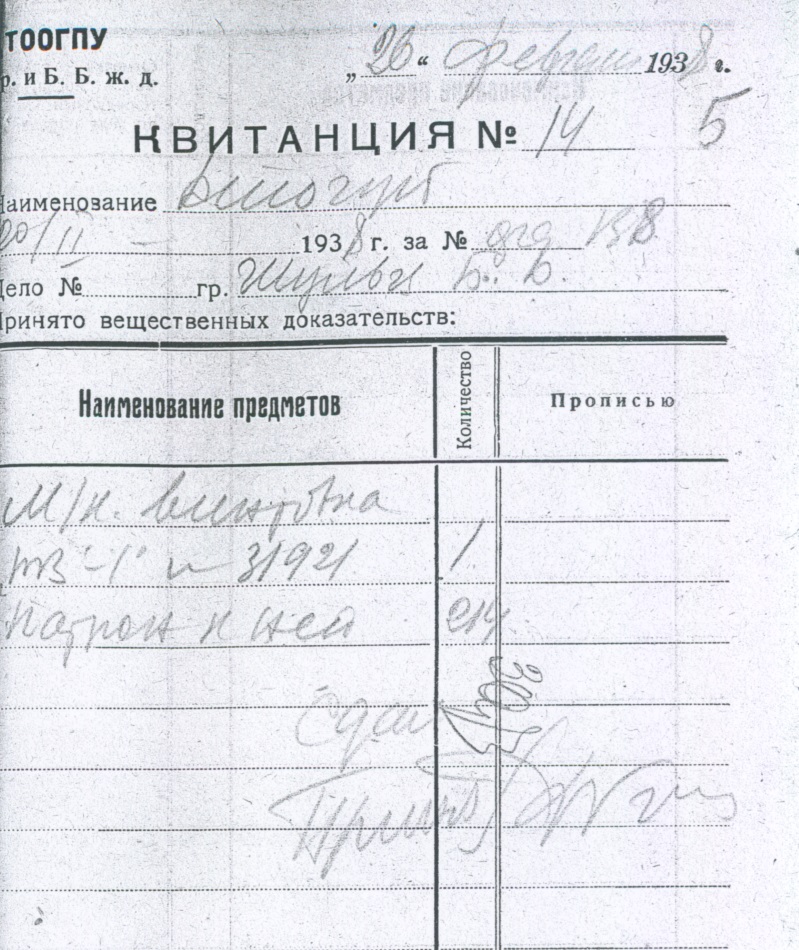 ТООГПУ
р. и Б. Б. ж. д.
„26“ февраля 1938 г.
КВИТАНЦИЯ № 14 5
Наименование
20/II – 1938 г. за №
Дело № гр. Шульги Б. В.
Принято вещественных доказательств:
Наименование предметов Количество Прописью
М/к. винтовка
ТОЗ-1 № 31921 1
Патрон к ней 214
Сдал
Принял